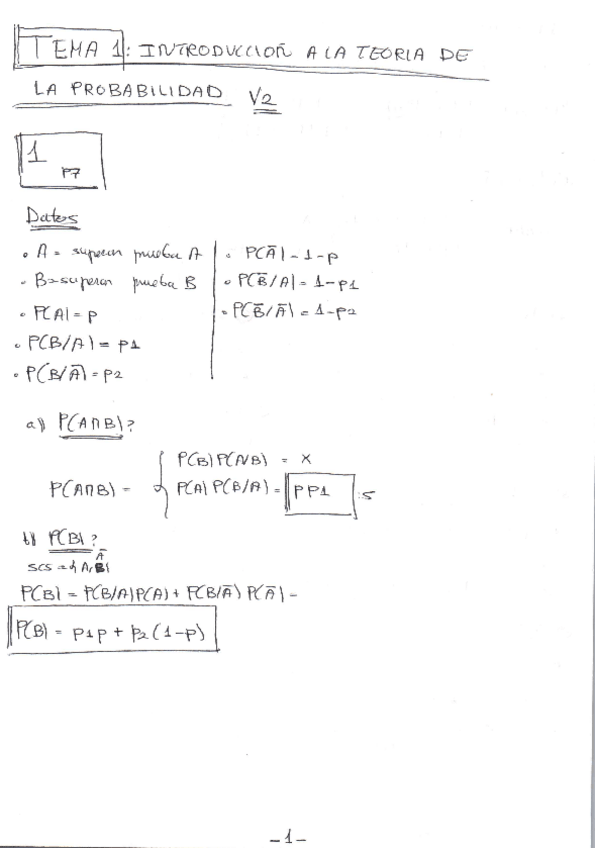 TEMA 1: INTRODUCCION A LA TEORIA DE
LA PROBABILIDAD V2
1
P7
Datos
• A = superan prueba A
• B = superan prueba B
• P(A) = p
• P(B/A) = p1
• P(B/A̅) = p2
• P(A̅) = 1-p
• P(B̅/A) = 1-p1
• P(B̅/A̅) = 1-p2
a) P(A∩B)?
P(A∩B) = { P(B) P(A/B) = X
P(A) P(B/A) = pp1
b) P(B)?
SCS = {A, A̅}
P(B) = P(B/A)P(A) + P(B/A̅) P(A̅) =
P(B) = p1p + p2(1-p)
-1-